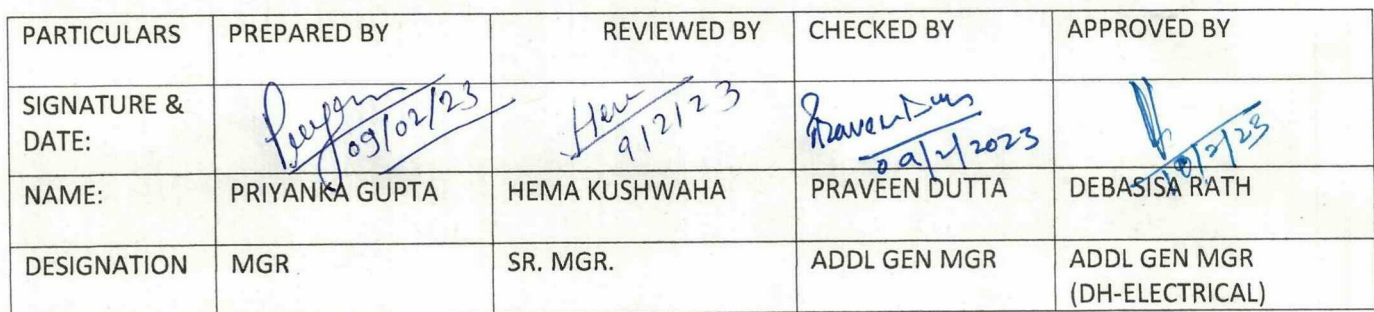 PARTICULARS PREPARED BY REVIEWED BY CHECKED BY APPROVED BY
SIGNATURE & DATE: 09/02/23 Hema 9/2/23 09/2/2023 10/2/23
NAME: PRIYANKA GUPTA HEMA KUSHWAHA PRAVEEN DUTTA DEBASISA RATH
DESIGNATION MGR SR. MGR. ADDL GEN MGR ADDL GEN MGR
(DH-ELECTRICAL)